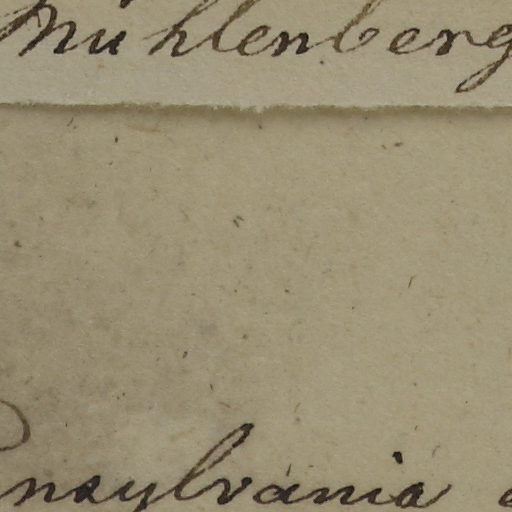 Mühlenberg
nnsylvania